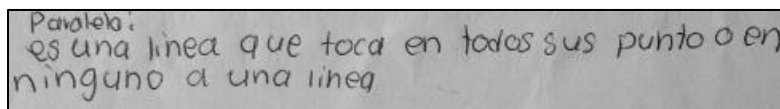 Paralela:
es una linea que toca en todos sus punto o en
ninguno a una linea